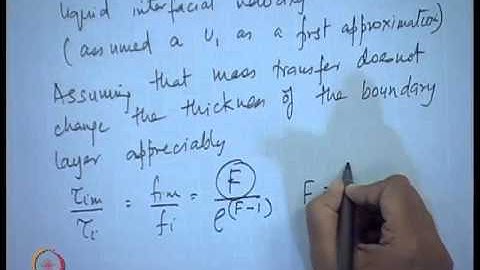 liquid interfacial velocity
(assumed a U₁ as a first approximation)
Assuming that mass transfer does not
change the thickness of the boundary
layer appreciably
τ_im/τ_i = f_im/f_i = F/e^(F-1) F =